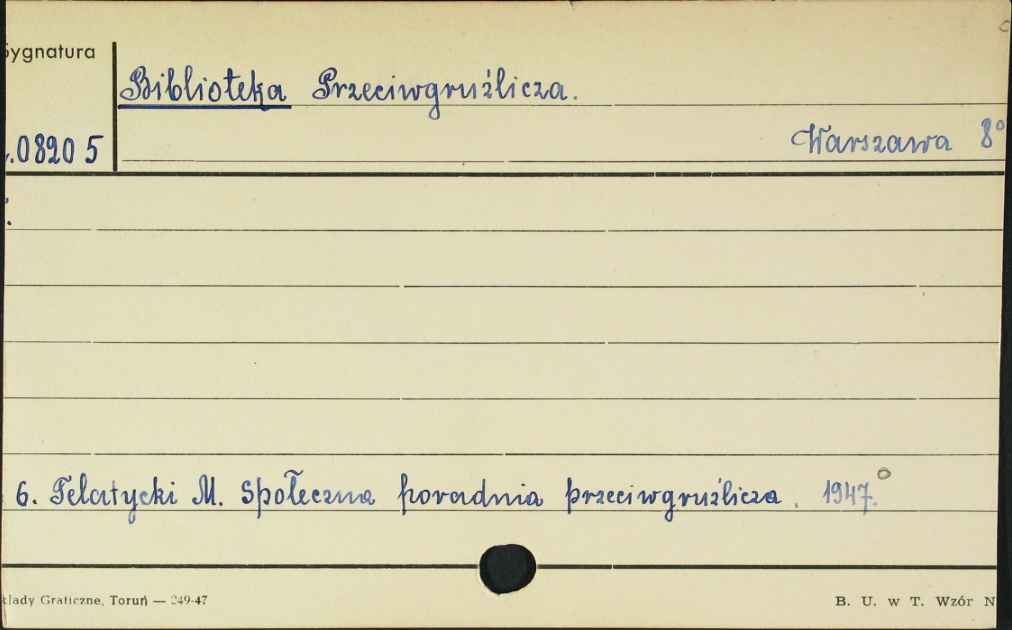 Sygnatura
Biblioteka Przeciwgruźlicza.
.08205
Warszawa 8°
6. Telatycki M. Społeczna poradnia przeciwgruźlicza. 1947.
kłady Graficzne, Toruń — 249-47
B. U. w T. Wzór N